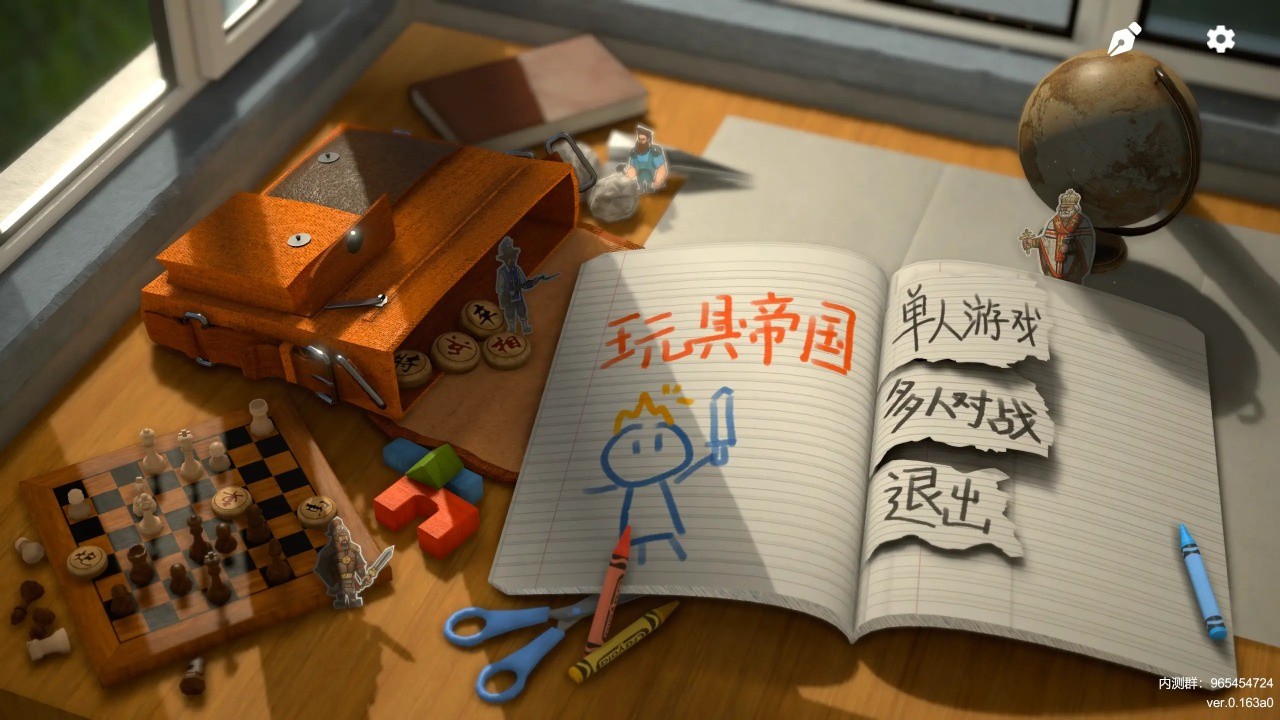 玩具帝国
单人游戏
多人对战
退出
车
相
内测群：965454724
ver.0.163a0